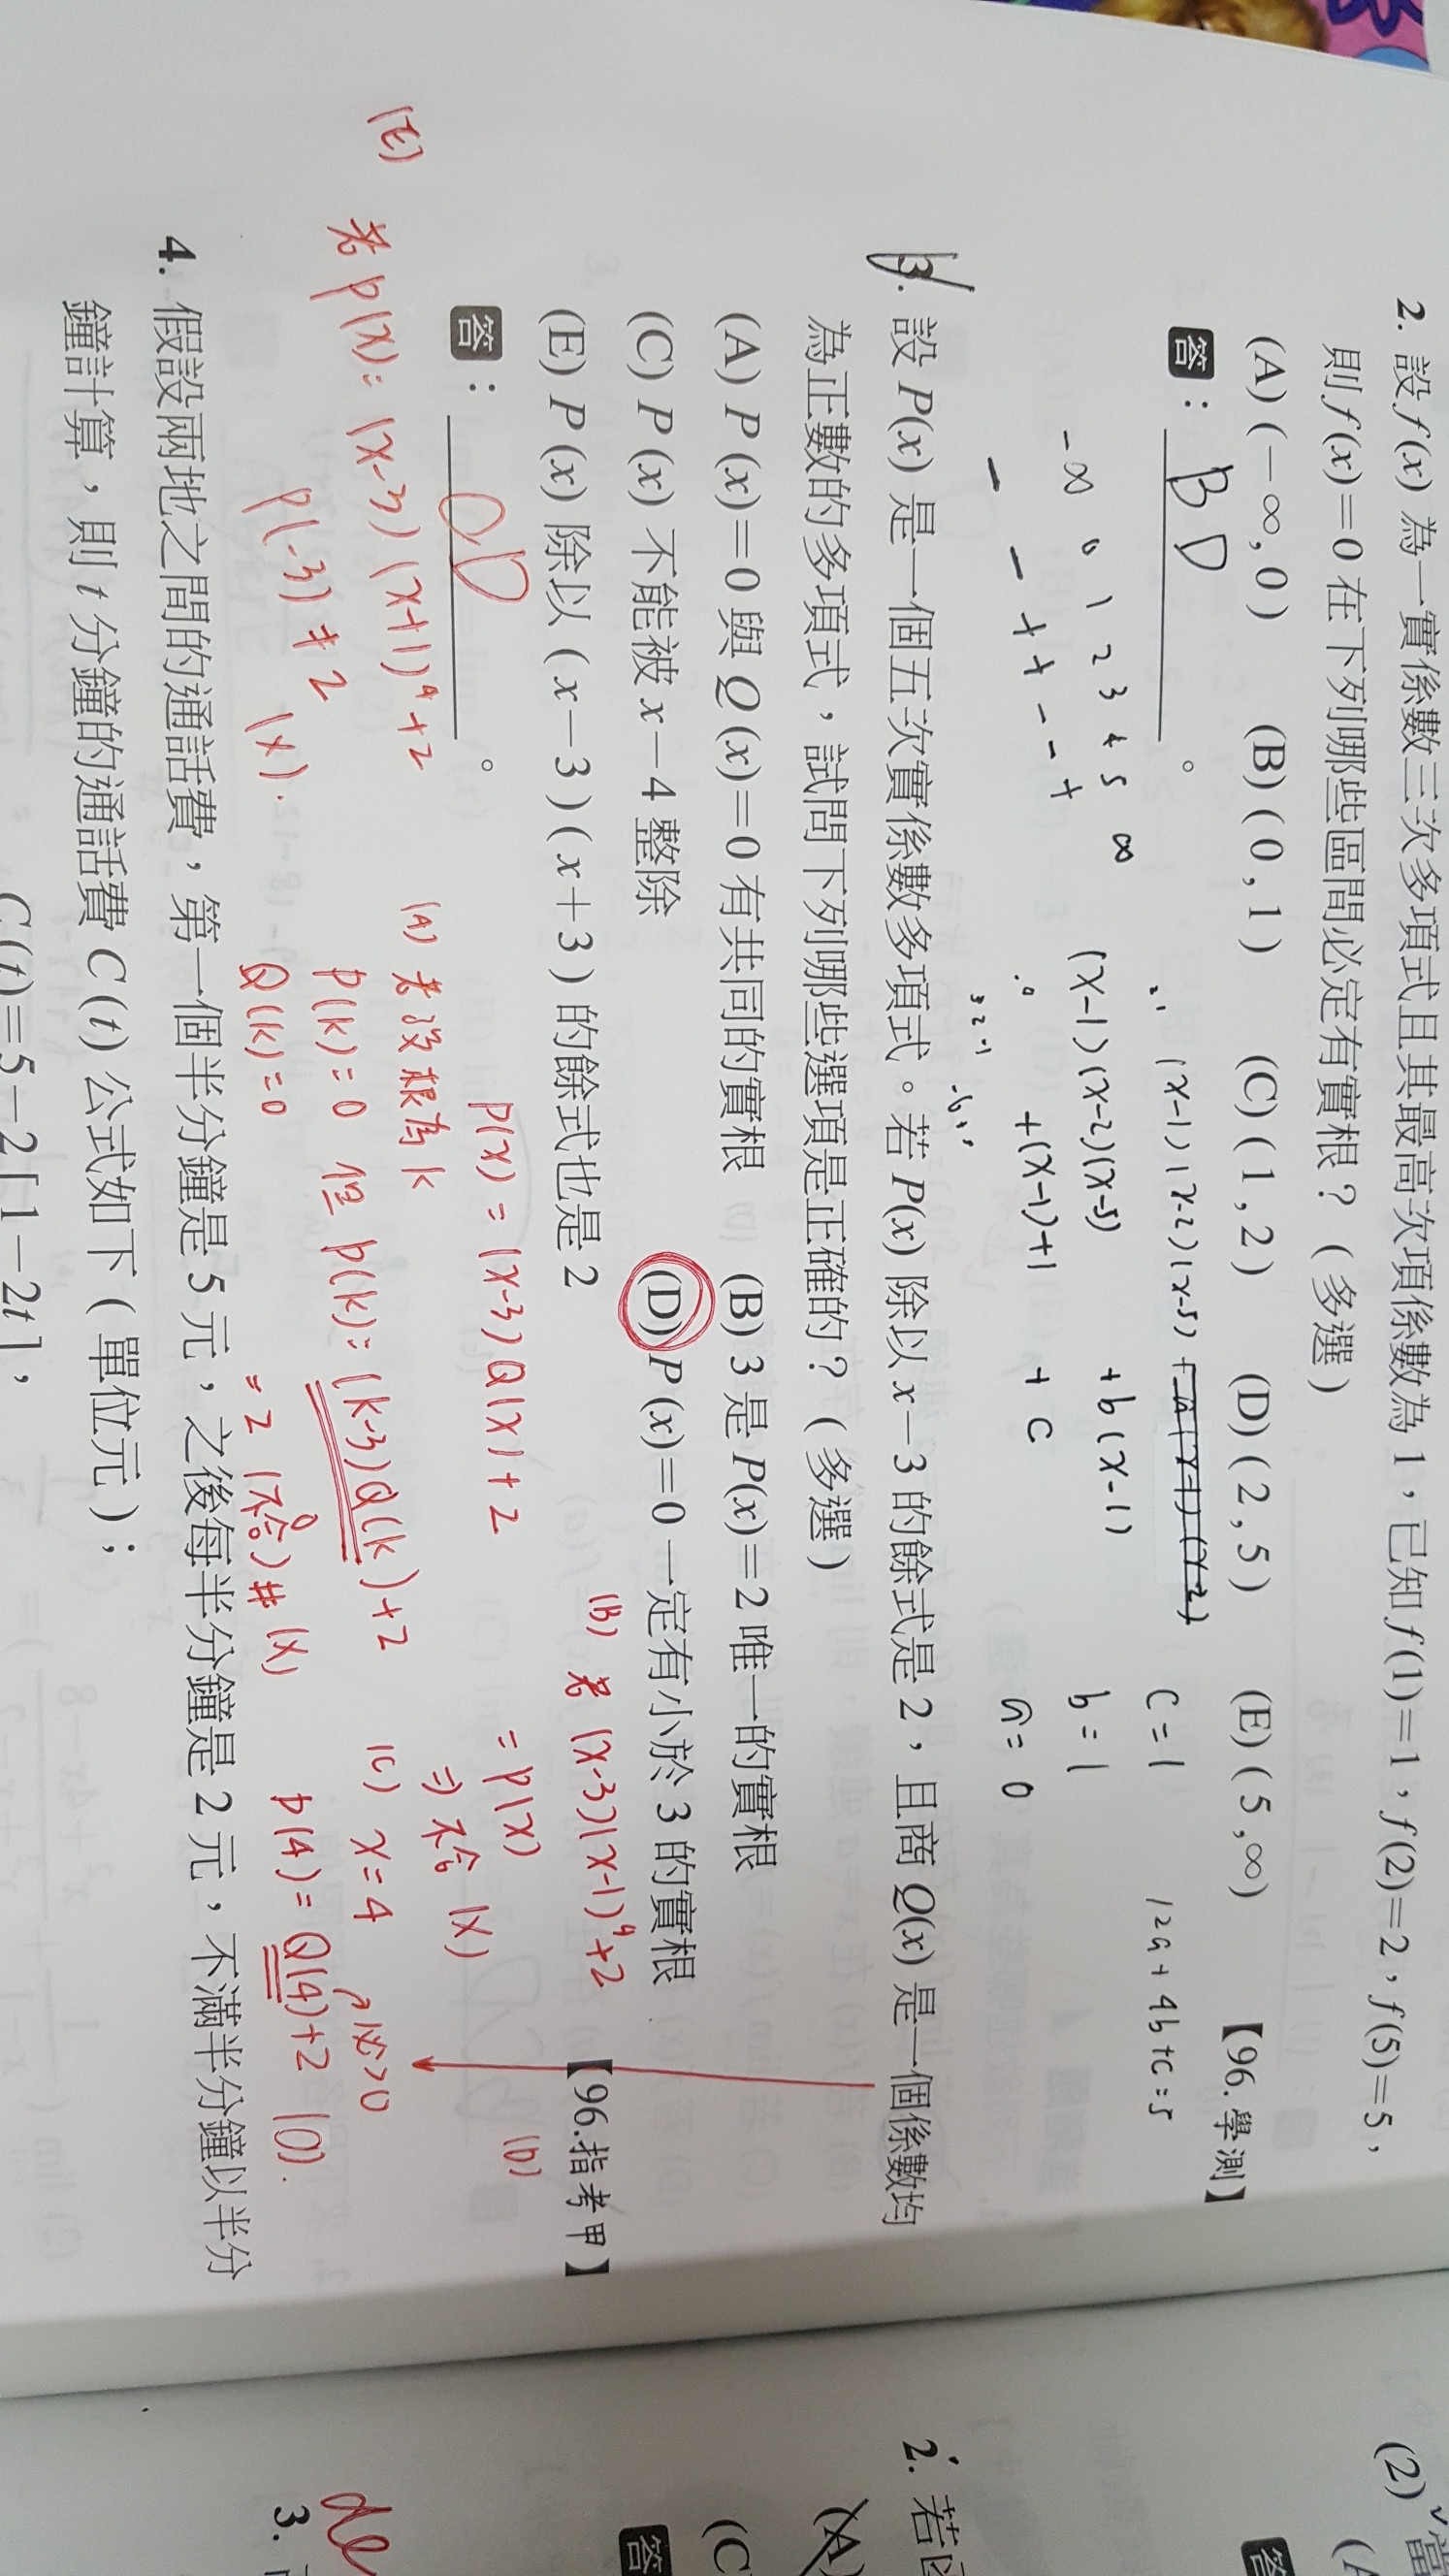 2. 設 f(x) 為一實係數三次多項式且其最高次項係數為 1，已知 f(1)=1，f(2)=2，f(5)=5，
則 f(x)=0 在下列哪些區間必定有實根？(多選)
【96.學測】
(A) (-∞,0) (B) (0,1) (C) (1,2) (D) (2,5) (E) (5,∞)
答：BD。
(x-1)(x-2)(x-5)
C=1
12a+4b+c=5
-∞ 0 1 2 3 4 5 ∞
(x-1)(x-2)(x-5)
+b(x-1)
b=1
- - + + - - +
+(x-1)+1
+C
a=0
3. 設 P(x) 是一個五次實係數多項式。若 P(x) 除以 x-3 的餘式是 2，且商 Q(x) 是一個係數均
為正數的多項式，試問下列哪些選項是正確的？(多選)
(A) P(x)=0 與 Q(x)=0 有共同的實根 (B) 3 是 P(x)=2 唯一的實根
(C) P(x) 不能被 x-4 整除 (D) P(x)=0 一定有小於 3 的實根
(E) P(x) 除以 (x-3)(x+3) 的餘式也是 2
【96.指考甲】
答：CD。
P(x)=(x-3)Q(x)+2
(A) 若設根為 k
P(k)=0 但 P(k)=(k-3)Q(k)+2
Q(k)=0
=2 (不合)# (x)
(B) 若 (x-3)(x-1)⁴+2
=P(x)
⇒ 不合 (x)
(C) x=4
必>0
P(4)=Q(4)+2 (O).
(D)
(E) 若 P(x)=(x-3)(x+1)⁴+2
P(-3)≠2 (x).
4. 假設兩地之間的通話費，第一個半分鐘是 5 元，之後每半分鐘是 2 元，不滿半分鐘以半分
鐘計算，則 t 分鐘的通話費 C(t) 公式如下 (單位元)；
C(t)=5-2[1-2t]，
(2) 當
答
2. 若
(A)
(C
答
3.
de